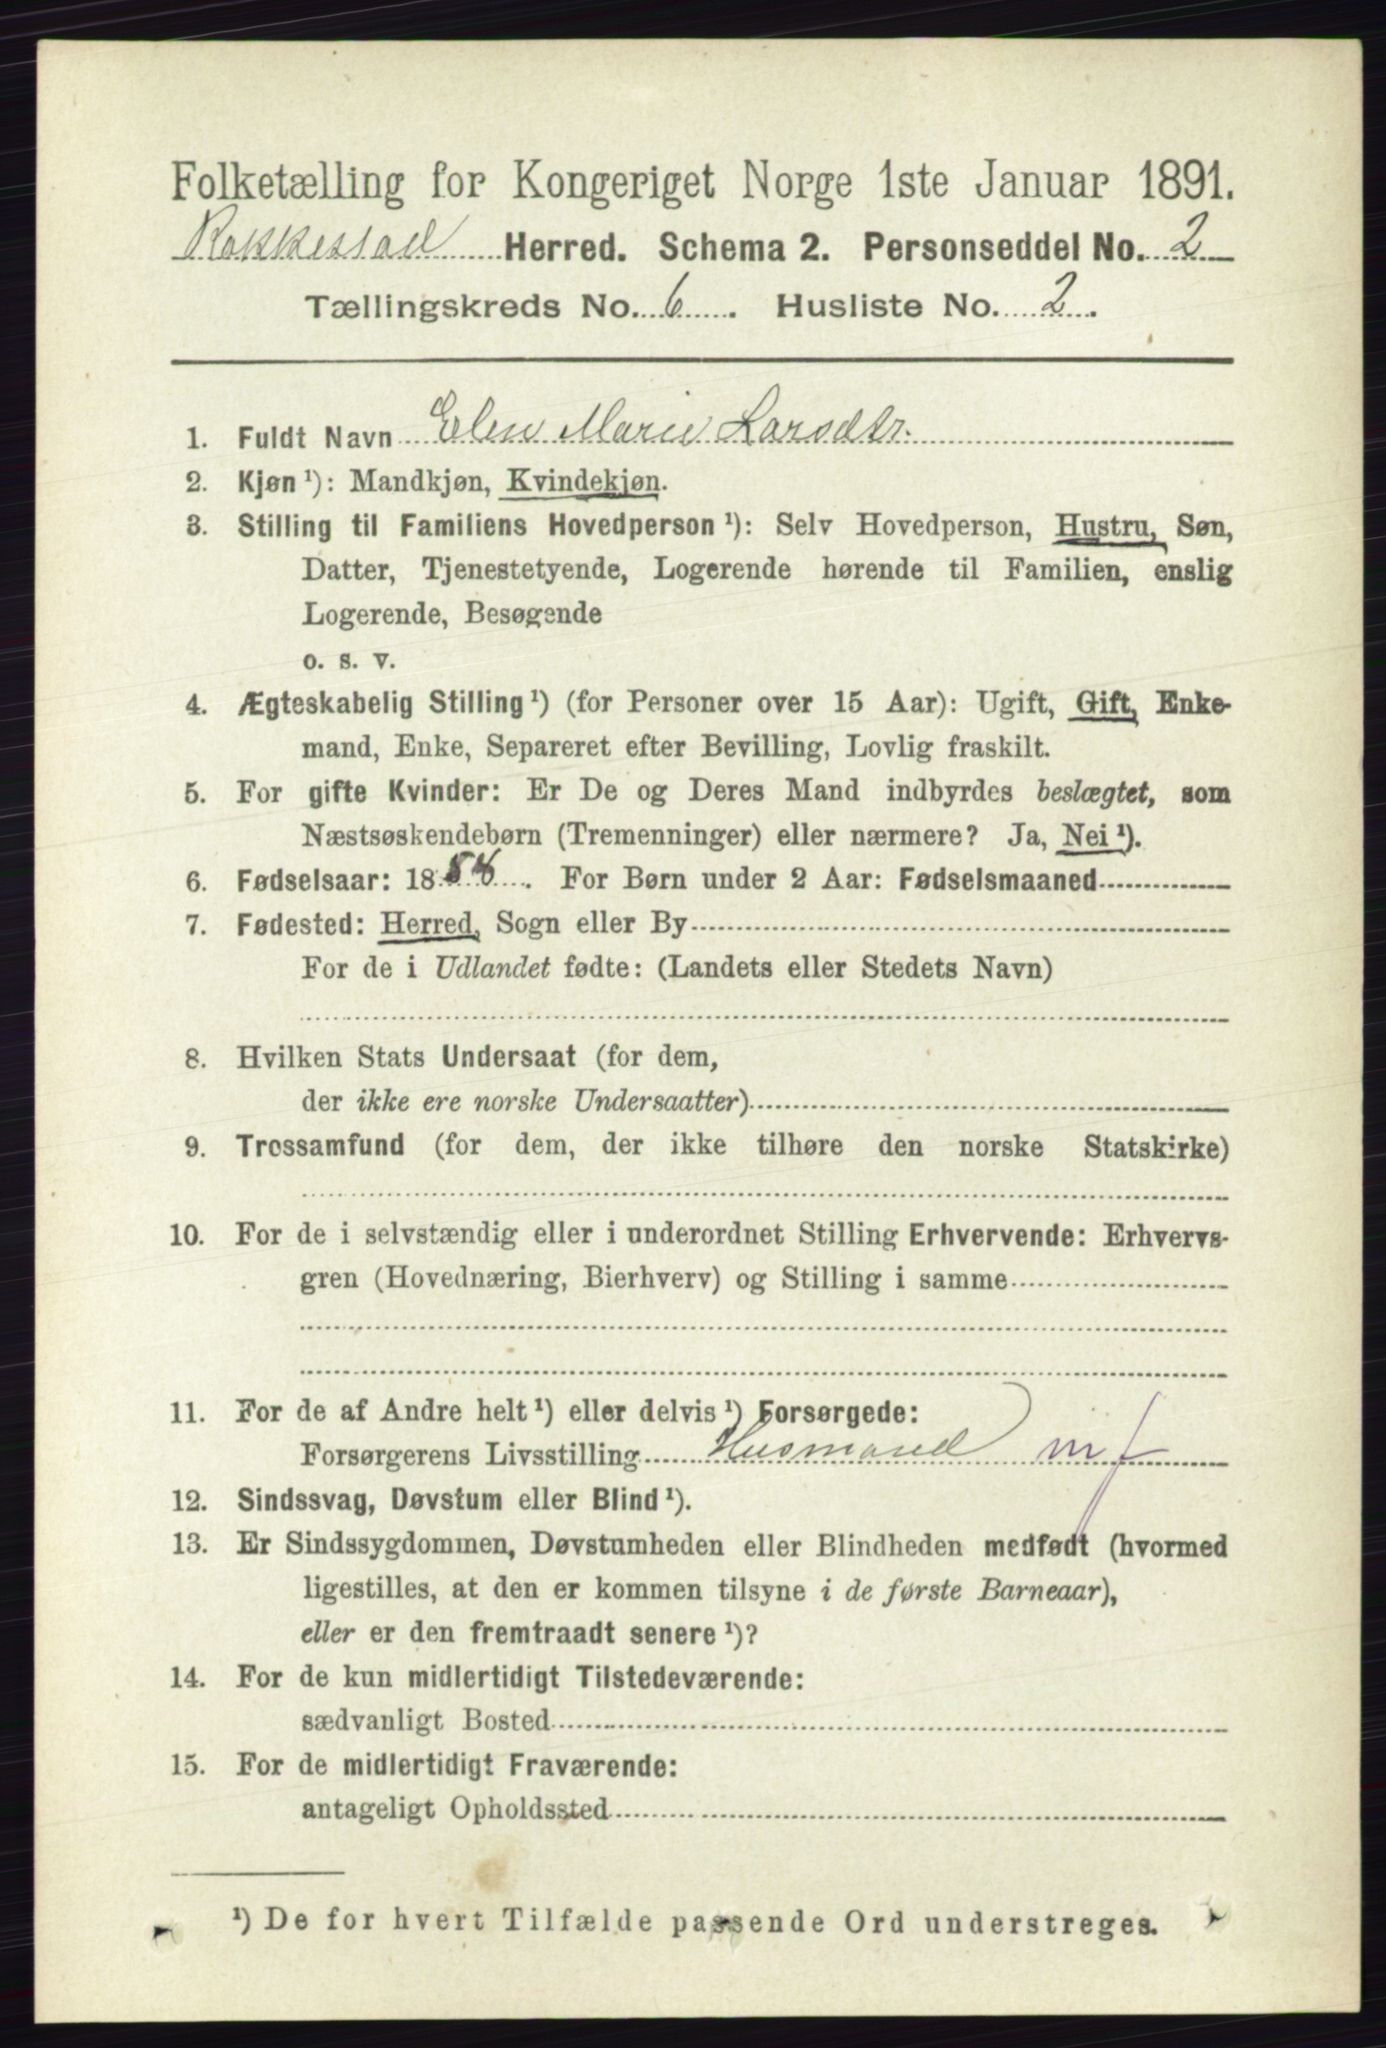 Folketælling for Kongeriget Norge 1ste Januar 1891.
Rakkestad Herred. Schema 2. Personseddel No. 2
Tællingskreds No. 6. Husliste No. 2.
1. Fuldt Navn Elen Marie Larsdtr.
2. Kjøn ¹): Mandkjøn, Kvindekjøn.
3. Stilling til Familiens Hovedperson ¹): Selv Hovedperson, Hustru, Søn,
Datter, Tjenestetyende, Logerende hørende til Familien, enslig
Logerende, Besøgende
o. s. v.
4. Ægteskabelig Stilling ¹) (for Personer over 15 Aar): Ugift, Gift, Enke-
mand, Enke, Separeret efter Bevilling, Lovlig fraskilt.
5. For gifte Kvinder: Er De og Deres Mand indbyrdes beslægtet, som
Næstsøskendebørn (Tremenninger) eller nærmere? Ja, Nei ¹).
6. Fødselsaar: 18 . For Børn under 2 Aar: Fødselsmaaned
7. Fødested: Herred, Sogn eller By
For de i Udlandet fødte: (Landets eller Stedets Navn)
8. Hvilken Stats Undersaat (for dem,
der ikke ere norske Undersaatter)
9. Trossamfund (for dem, der ikke tilhøre den norske Statskirke)
10. For de i selvstændig eller i underordnet Stilling Erhvervende: Erhvervs-
gren (Hovednæring, Bierhverv) og Stilling i samme
11. For de af Andre helt ¹) eller delvis ¹) Forsørgede:
Forsørgerens Livsstilling Husmand mf
12. Sindssvag, Døvstum eller Blind ¹).
13. Er Sindssygdommen, Døvstumheden eller Blindheden medfødt (hvormed
ligestilles, at den er kommen tilsyne i de første Barneaar),
eller er den fremtraadt senere ¹)?
14. For de kun midlertidigt Tilstedeværende:
sædvanligt Bosted
15. For de midlertidigt Fraværende:
antageligt Opholdssted
¹) De for hvert Tilfælde passende Ord understreges.